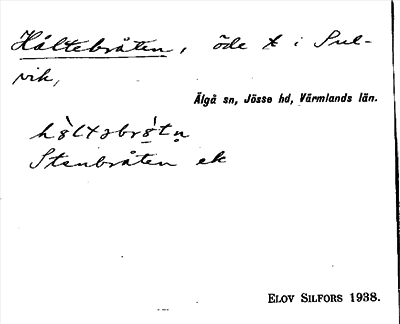 Håltebråten, öde t i Sul-
vik,
Älgå sn, Jösse hd, Värmlands län.
Stenbråten ek
ELOV SILFORS 1938.